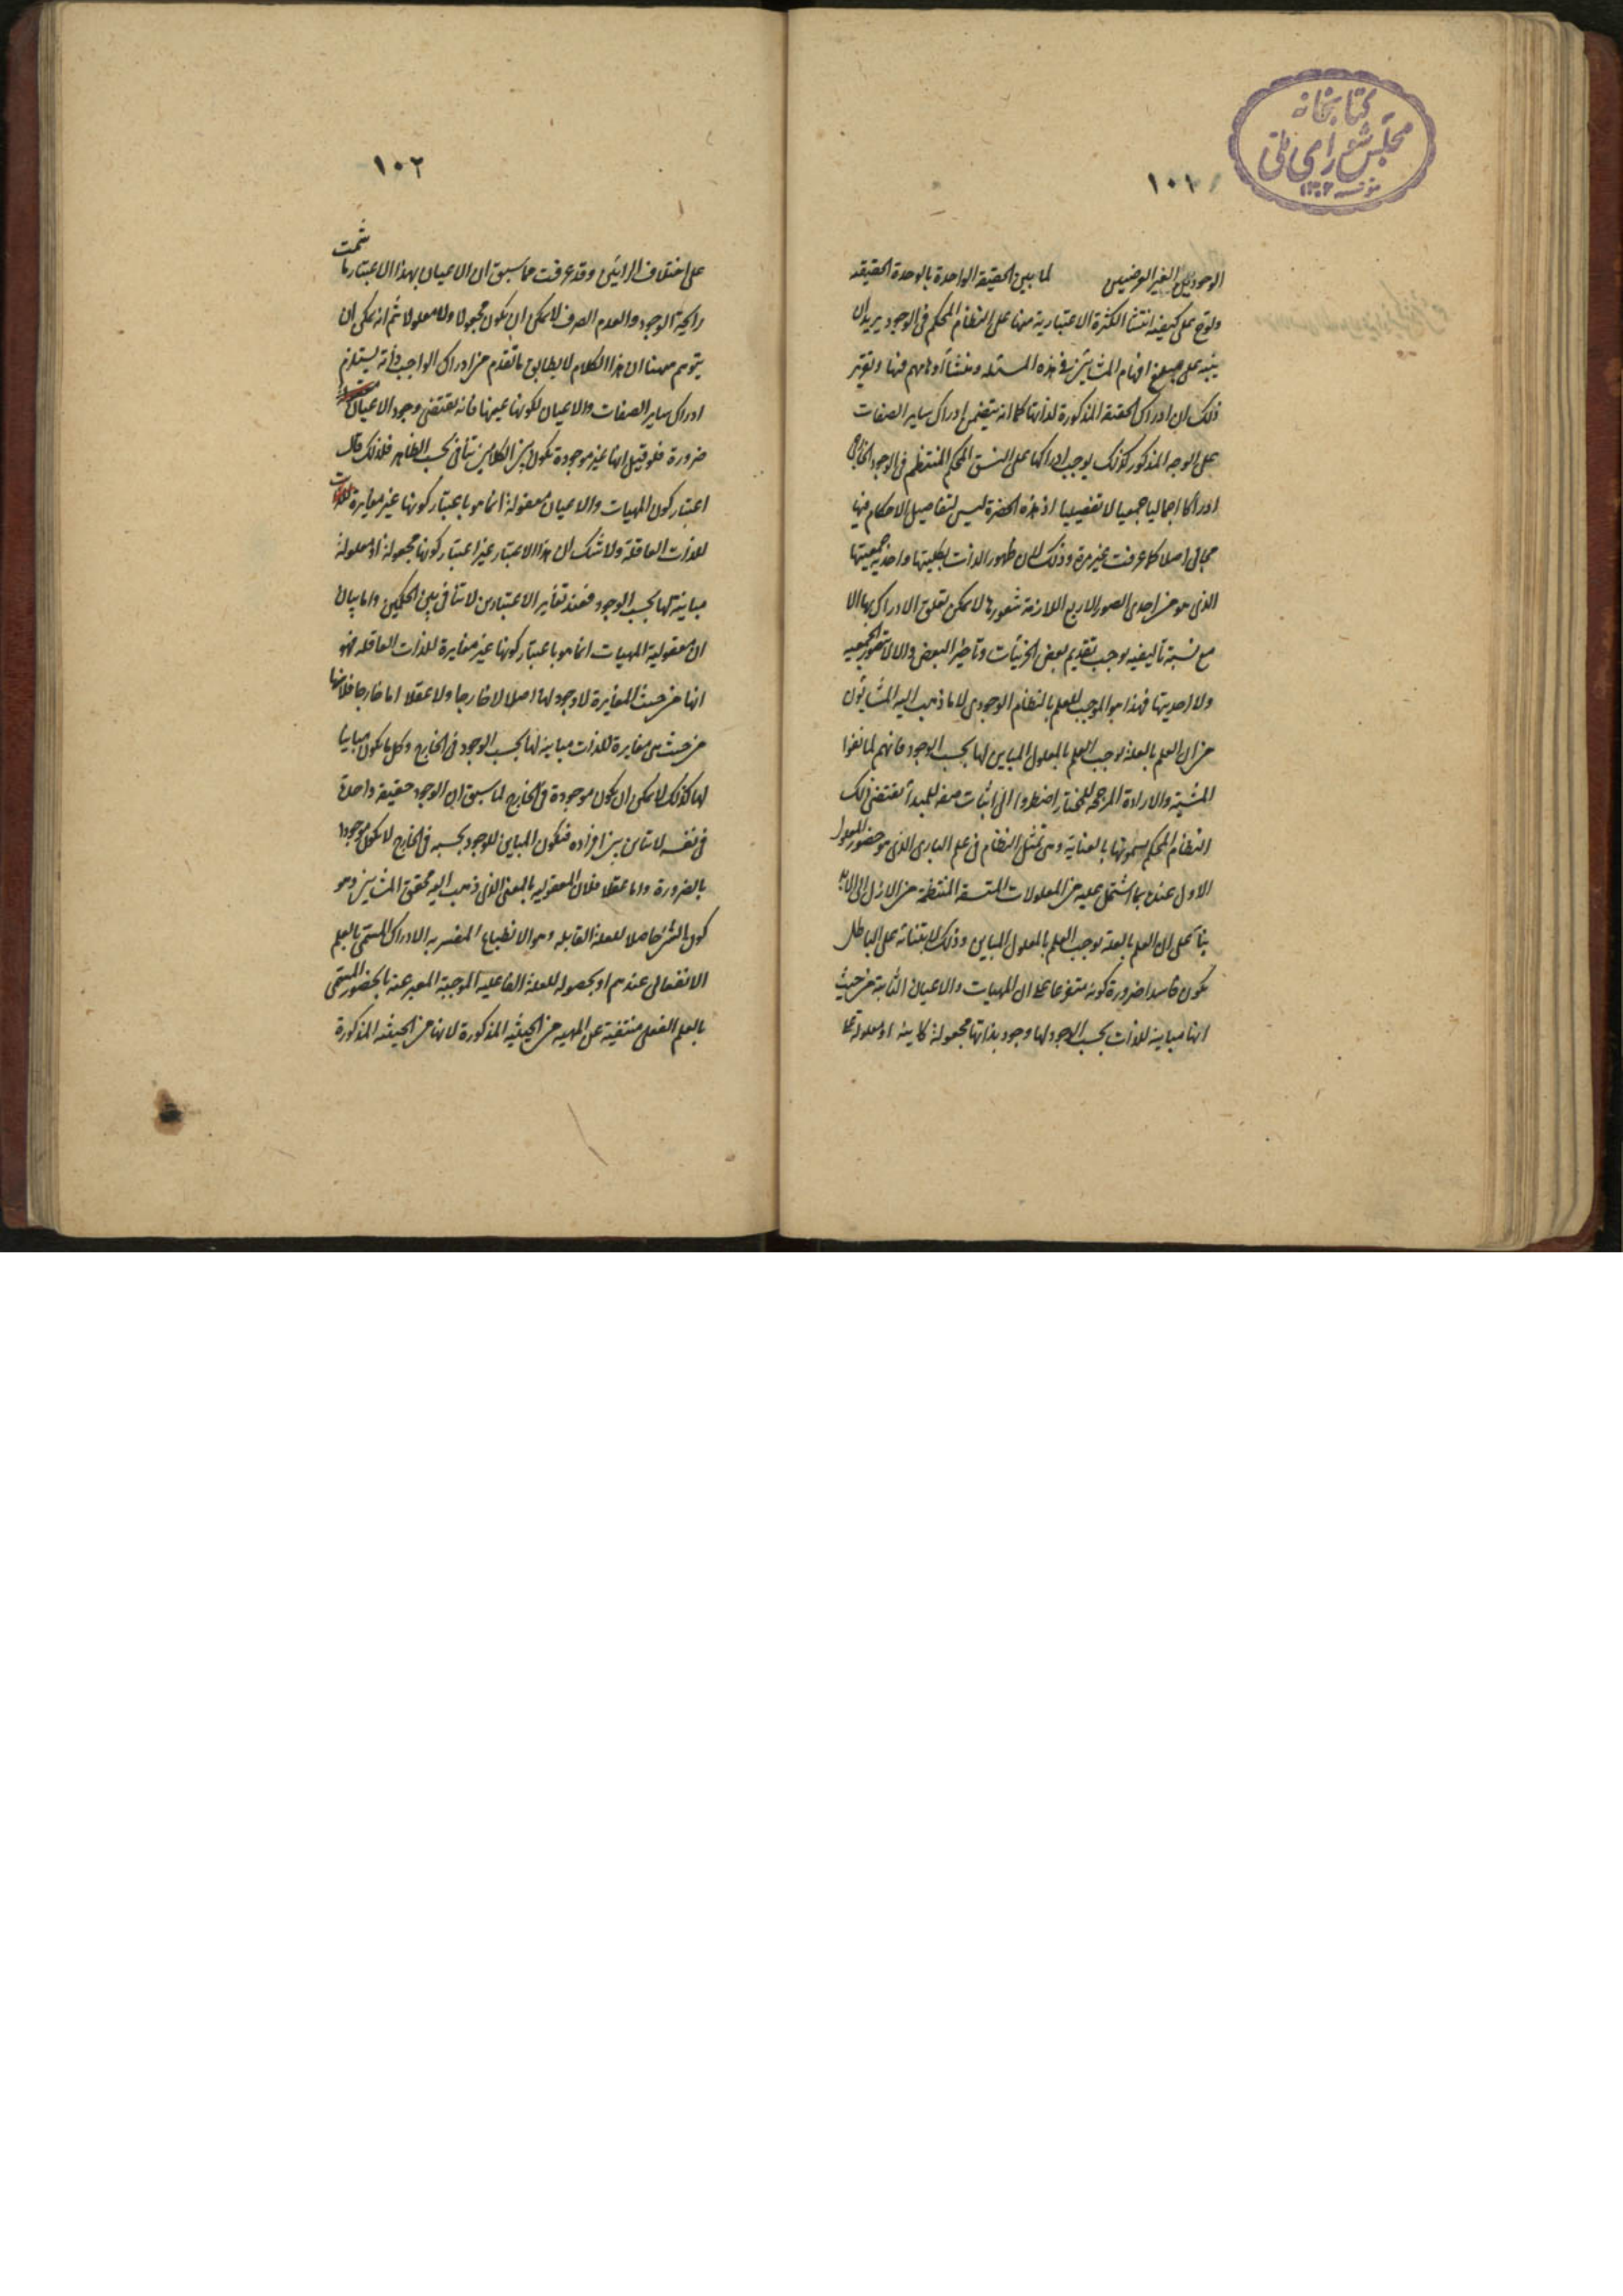 كتابخانه
مجلس شورای ملی
مؤسسه ۱۳۰۲
۱۰۱
الوجوديين الغير العرضيين لما بين الحقيقة الواحدة بالوحدة الحقيقة
ولوّح على كيفية انتشا الكثرة الاعتبارية منها على النظام المحكم فى الوجود يريد ان
ينبه على مبلغ افهام المشائين فى هذه المسئلة ومنشأ أوهامهم فيها وتقرير
ذلك ان ادراك الحقيقة المذكورة لذاتها كما انه يتضمن ادراك ساير الصفات
على الوجه المذكور كذلك يوجب ادراكها على النسق المحكم المنتظم فى الوجود الخارجى
ادراكا اجماليا جمعيا لا تفصيليا اذ هذه الحضرة ليس لتفاصيل الاحكام فيها
مجالى اصلا كما عرفت غير مرة وذلك لان ظهور الذات بكليتها واحدية جمعيتها
الذى هو من احدى الصور الاربع اللازمة شعورها لا يمكن تعلق الادراك بها الا
مع نسبة تأليفيه يوجب تقديم بعض الجزئيات وتأخير البعض والا لا يتصور الجمعيه
ولا احديتها فهذا هو الموجب للعلم بالنظام الوجودى لا ما ذهب اليه المشائون
من ان العلم بالعلة يوجب العلم بالمعلول المباين لها بحسب الوجود فانهم لما نفوا
المشيّة والارادة المرجحة للمختار اضطروا الى اثبات صفه للمبدأ يقتضى ذلك
النظام المحكم يسمونها بالعناية وهى تمثل النظام فى علم البارى الذى هو حضور المعلول
الاول عنده بما اشتمل عليه من المعلولات المتسقة المنتظمة من الازل الى الابد
بناءً على ان العلم بالعلة يوجب العلم بالمعلول المباين وذلك لابتنائه على الباطل
يكون فاسدا ضرورة كونه متفرعا على ان المهيات والاعيان الثابتة من حيث
انها مباينة للذات بحسب الوجود لها وجود بذاتها مجعولة كاينة او معلولة على
۱۰۲
على اختلاف الرائين وقد عرفت مما سبق ان الاعيان بهذا الاعتبار ما شمت
رايحة الوجود والعدم الصرف لا يمكن ان يكون مجعولا ولا معلولا ثم انه يمكن ان
يتوهم ههنا ان هذا الكلام لا يطابق ما تقدم من ادراك الواجب ذاته يستلزم
ادراك ساير الصفات والاعيان لكونها عينها فانه يقتضى وجود الاعيان
ضرورة فلو قيل انها غير موجودة يكون بين الكلامين تنافى بحسب الظاهر فلذلك قال
اعتبار كون المهيات والاعيان معقولة انما هو باعتبار كونها غير مغايرة للذات
للذات العاقلة ولا شك ان هذا الاعتبار غير اعتبار كونها مجعولة او معلولة
مباينة لها بحسب الوجود فعند تغاير الاعتبارين لا تنافى بين الحكمين واما بيان
ان معقولية المهيات انما هو باعتبار كونها غير مغايرة للذات العاقله فهو
انها من حيث المغايرة لا وجود لها اصلا لا خارجا ولا عقلا اما خارجا فلانها
من حيث هى مغايرة للذات مباينة لها بحسب الوجود فى الخارج وكل ما يكون مباينا
لها كذلك لا يمكن ان يكون موجودة فى الخارج لما سبق ان الوجود حقيقة واحدة
فى نفسه لا تباين بين افراده فيكون المباين للوجود بحسبه فى الخارج لا يكون موجودا
بالضرورة واما عقلا فلان المعقوليه بالمعنى الذى ذهب اليه محققى المشائين وهو
كون الشئ حاصلا للعلة القابله وهو الانطباع المفسر به الادراك المسمى بالعلم
الانفعالى عندهم او بحصوله للعلة الفاعليه الموجبة المعبر عنه بالحضور المسمى
بالعلم الفعلى منتفية عن المهيه من الحيثيه المذكورة لانها من الحيثيه المذكورة